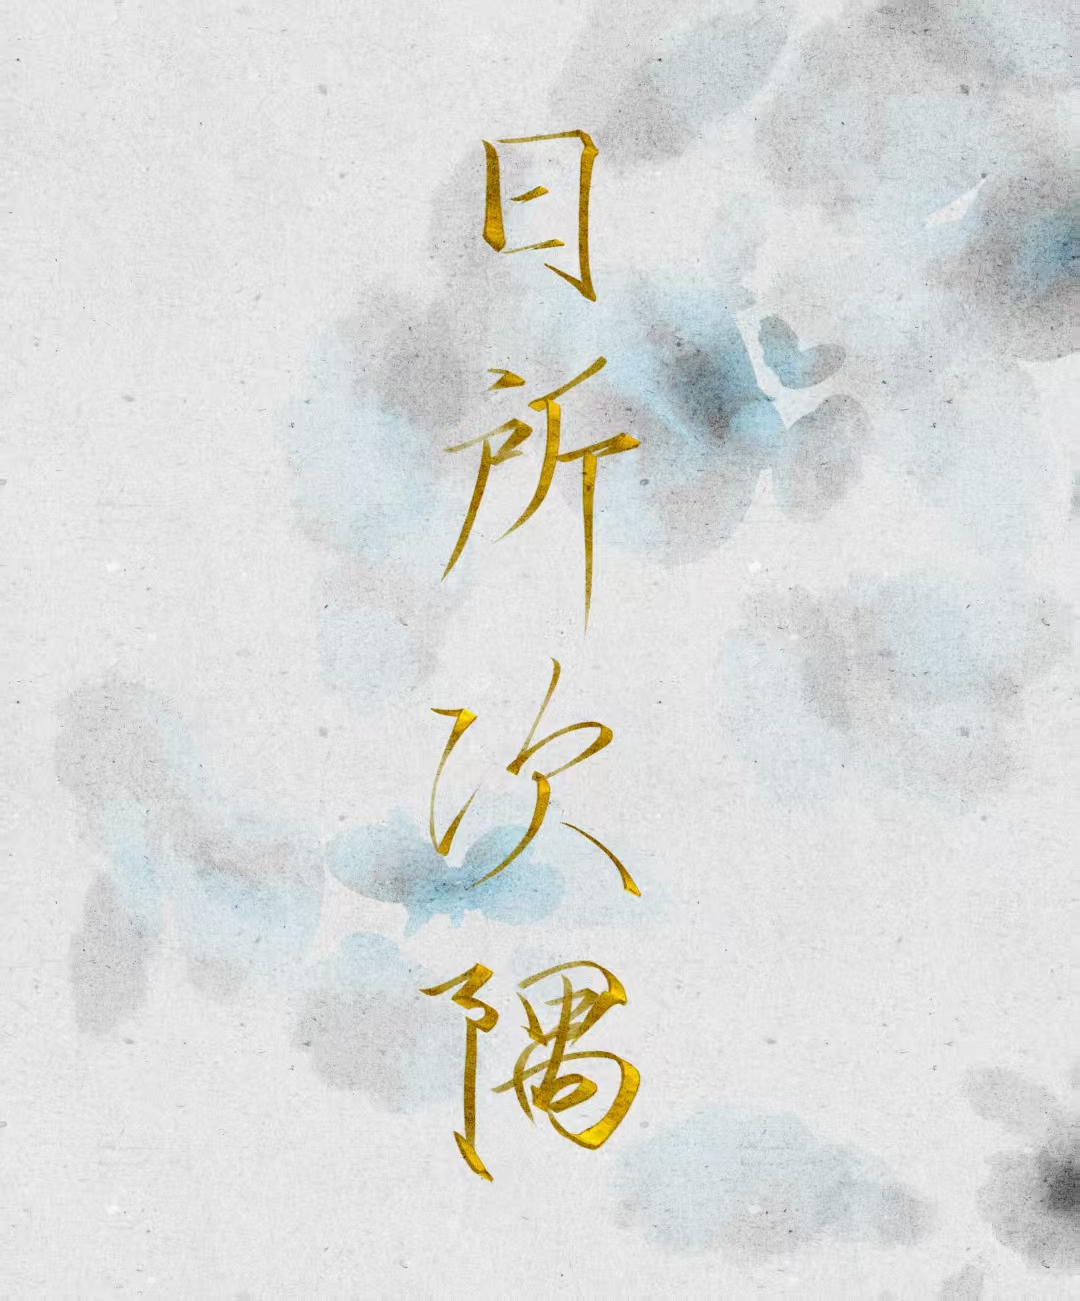 日所次隅